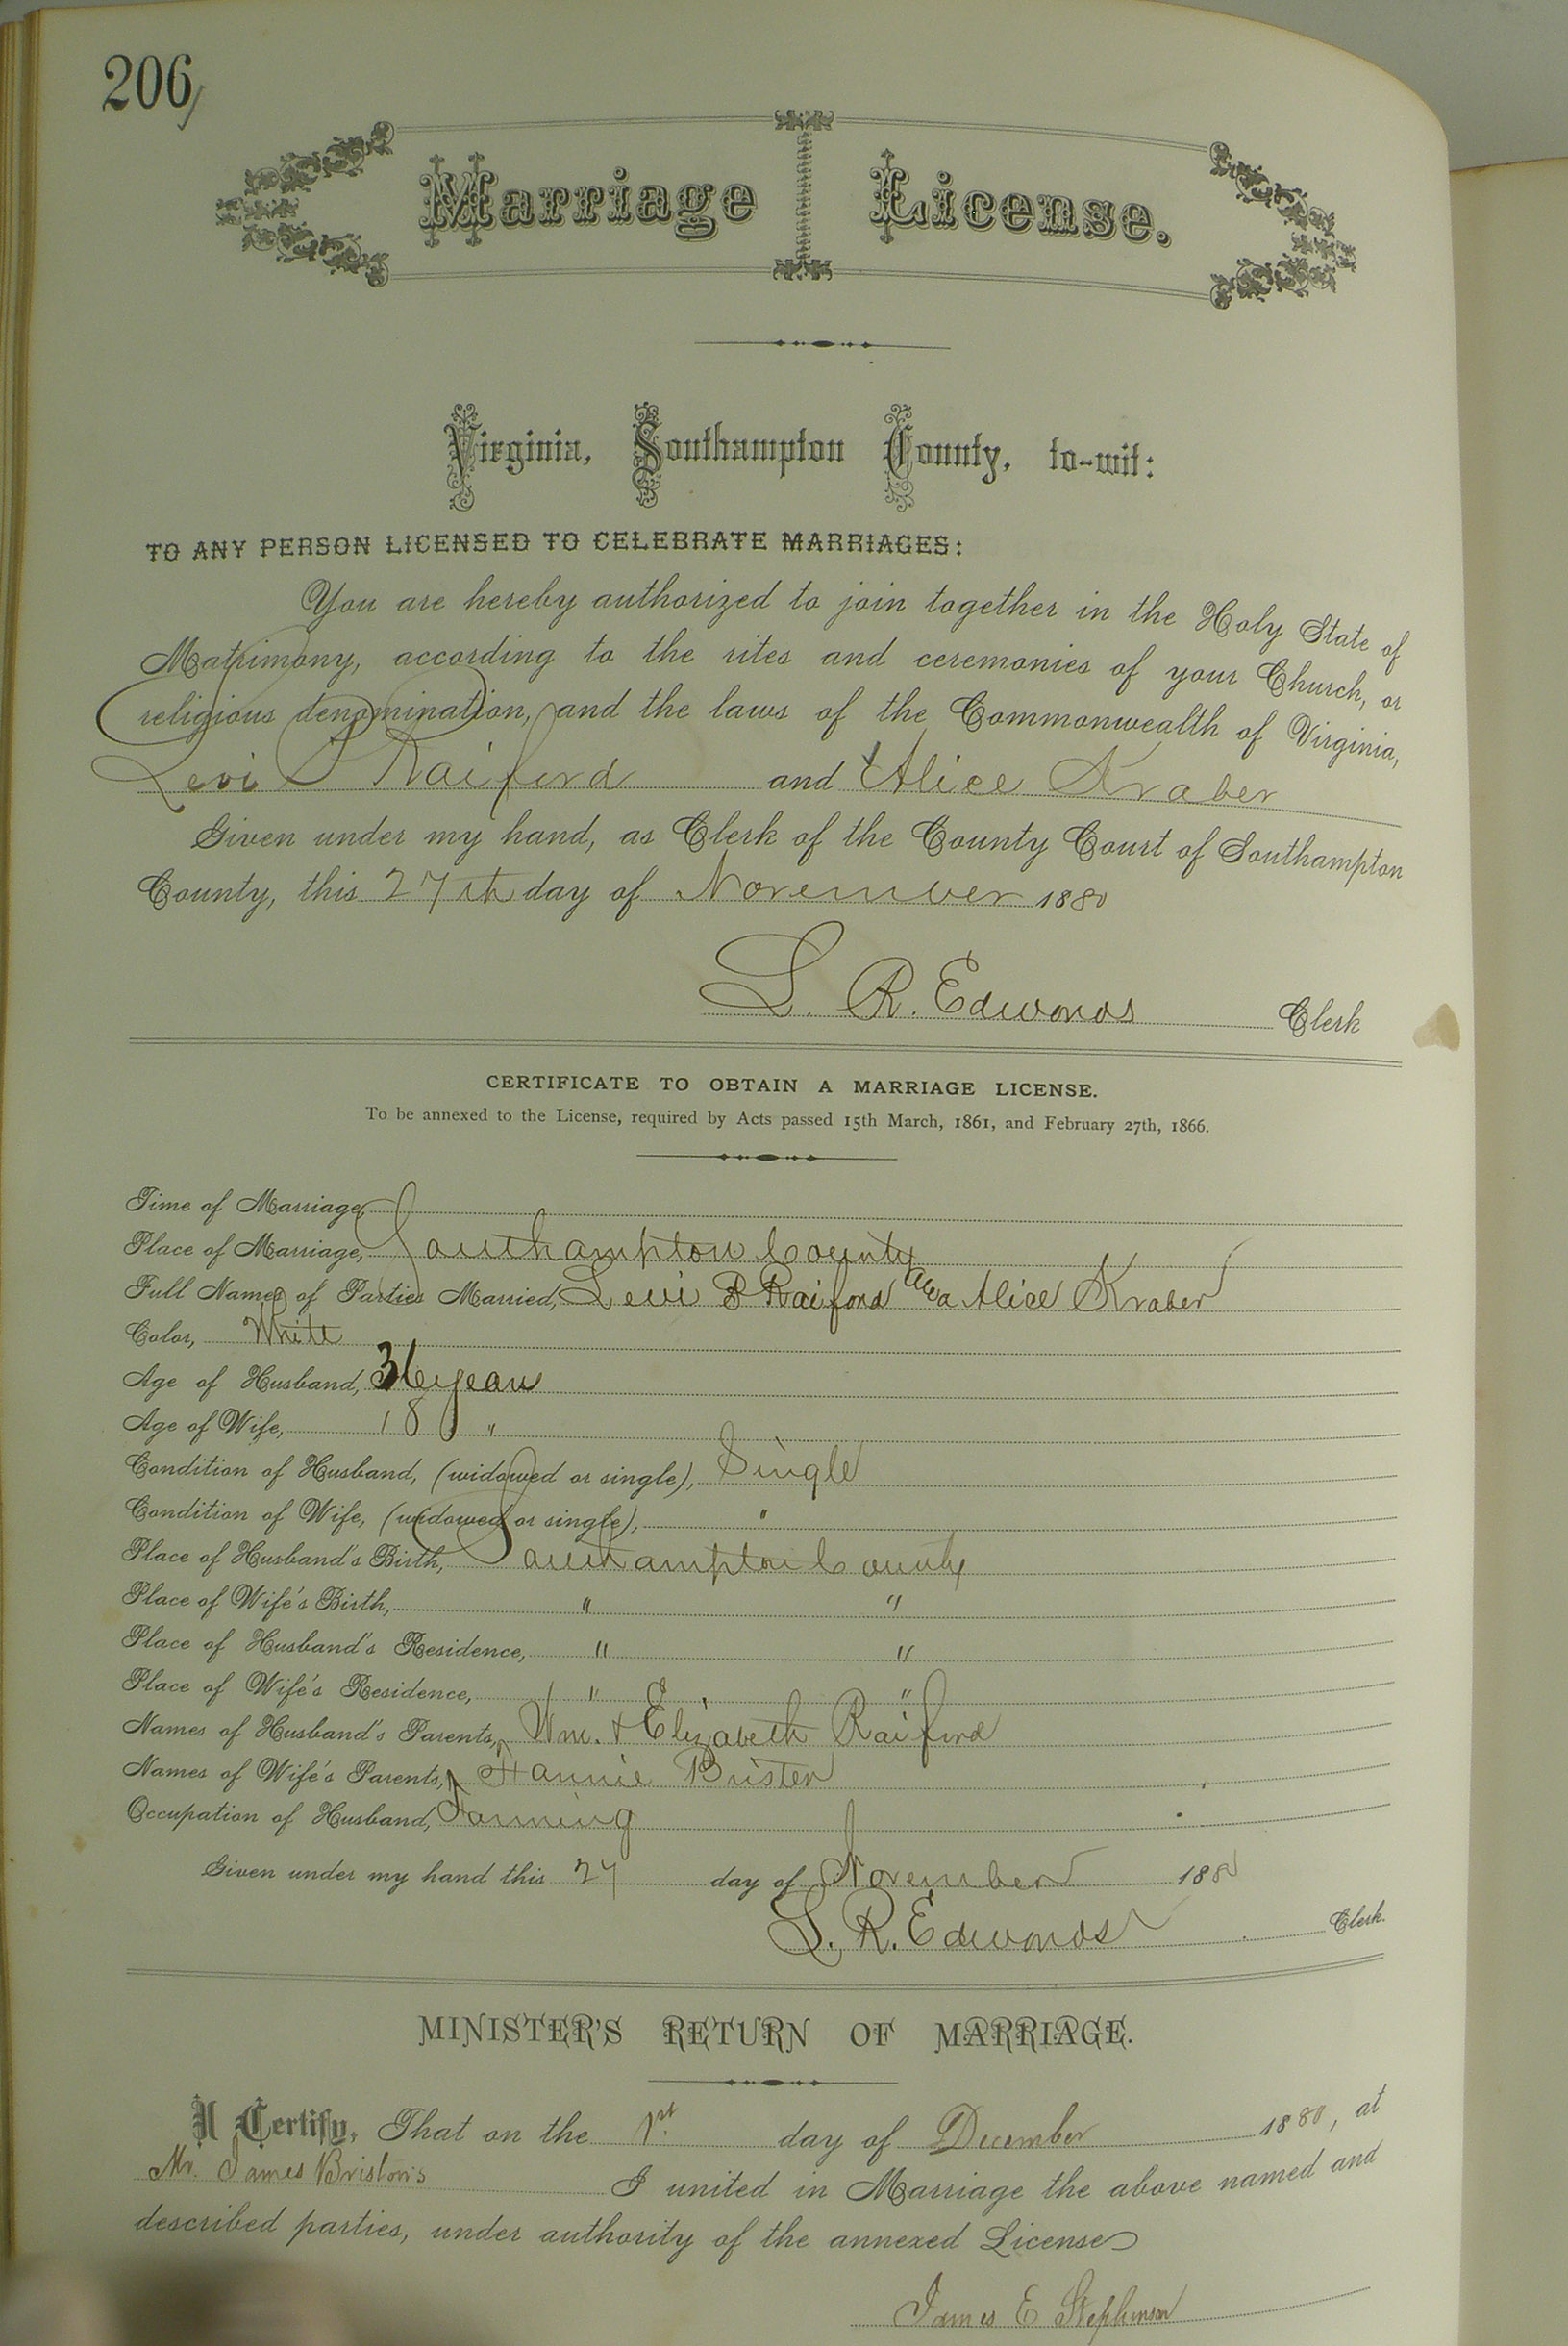 206
Marriage License.
Virginia, Southampton County, to-wit:
TO ANY PERSON LICENSED TO CELEBRATE MARRIAGES:
You are hereby authorized to join together in the Holy State of
Matrimony, according to the rites and ceremonies of your Church, or
religious denomination, and the laws of the Commonwealth of Virginia,
Levi Raiford and Alice Kraber
Given under my hand, as Clerk of the County Court of Southampton
County, this 27th day of November 1880
L. R. Edwards Clerk
CERTIFICATE TO OBTAIN A MARRIAGE LICENSE.
To be annexed to the License, required by Acts passed 15th March, 1861, and February 27th, 1866.
Time of Marriage,
Place of Marriage, Southampton County
Full Names of Parties Married, Levi Raiford and Alice Kraber
Color, White
Age of Husband, 36 years
Age of Wife, 18 "
Condition of Husband, (widowed or single), Single
Condition of Wife, (widowed or single), "
Place of Husband's Birth, Southampton County
Place of Wife's Birth, " "
Place of Husband's Residence, " "
Place of Wife's Residence, " "
Names of Husband's Parents, Wm. & Elizabeth Raiford
Names of Wife's Parents, Fannie Brister
Occupation of Husband, Farming
Given under my hand this 27 day of November 1880
L. R. Edwards Clerk.
MINISTER'S RETURN OF MARRIAGE.
I Certify, That on the 1st day of December 1880, at
Mr. James Bristow's I united in Marriage the above named and
described parties, under authority of the annexed License
James E Stephenson